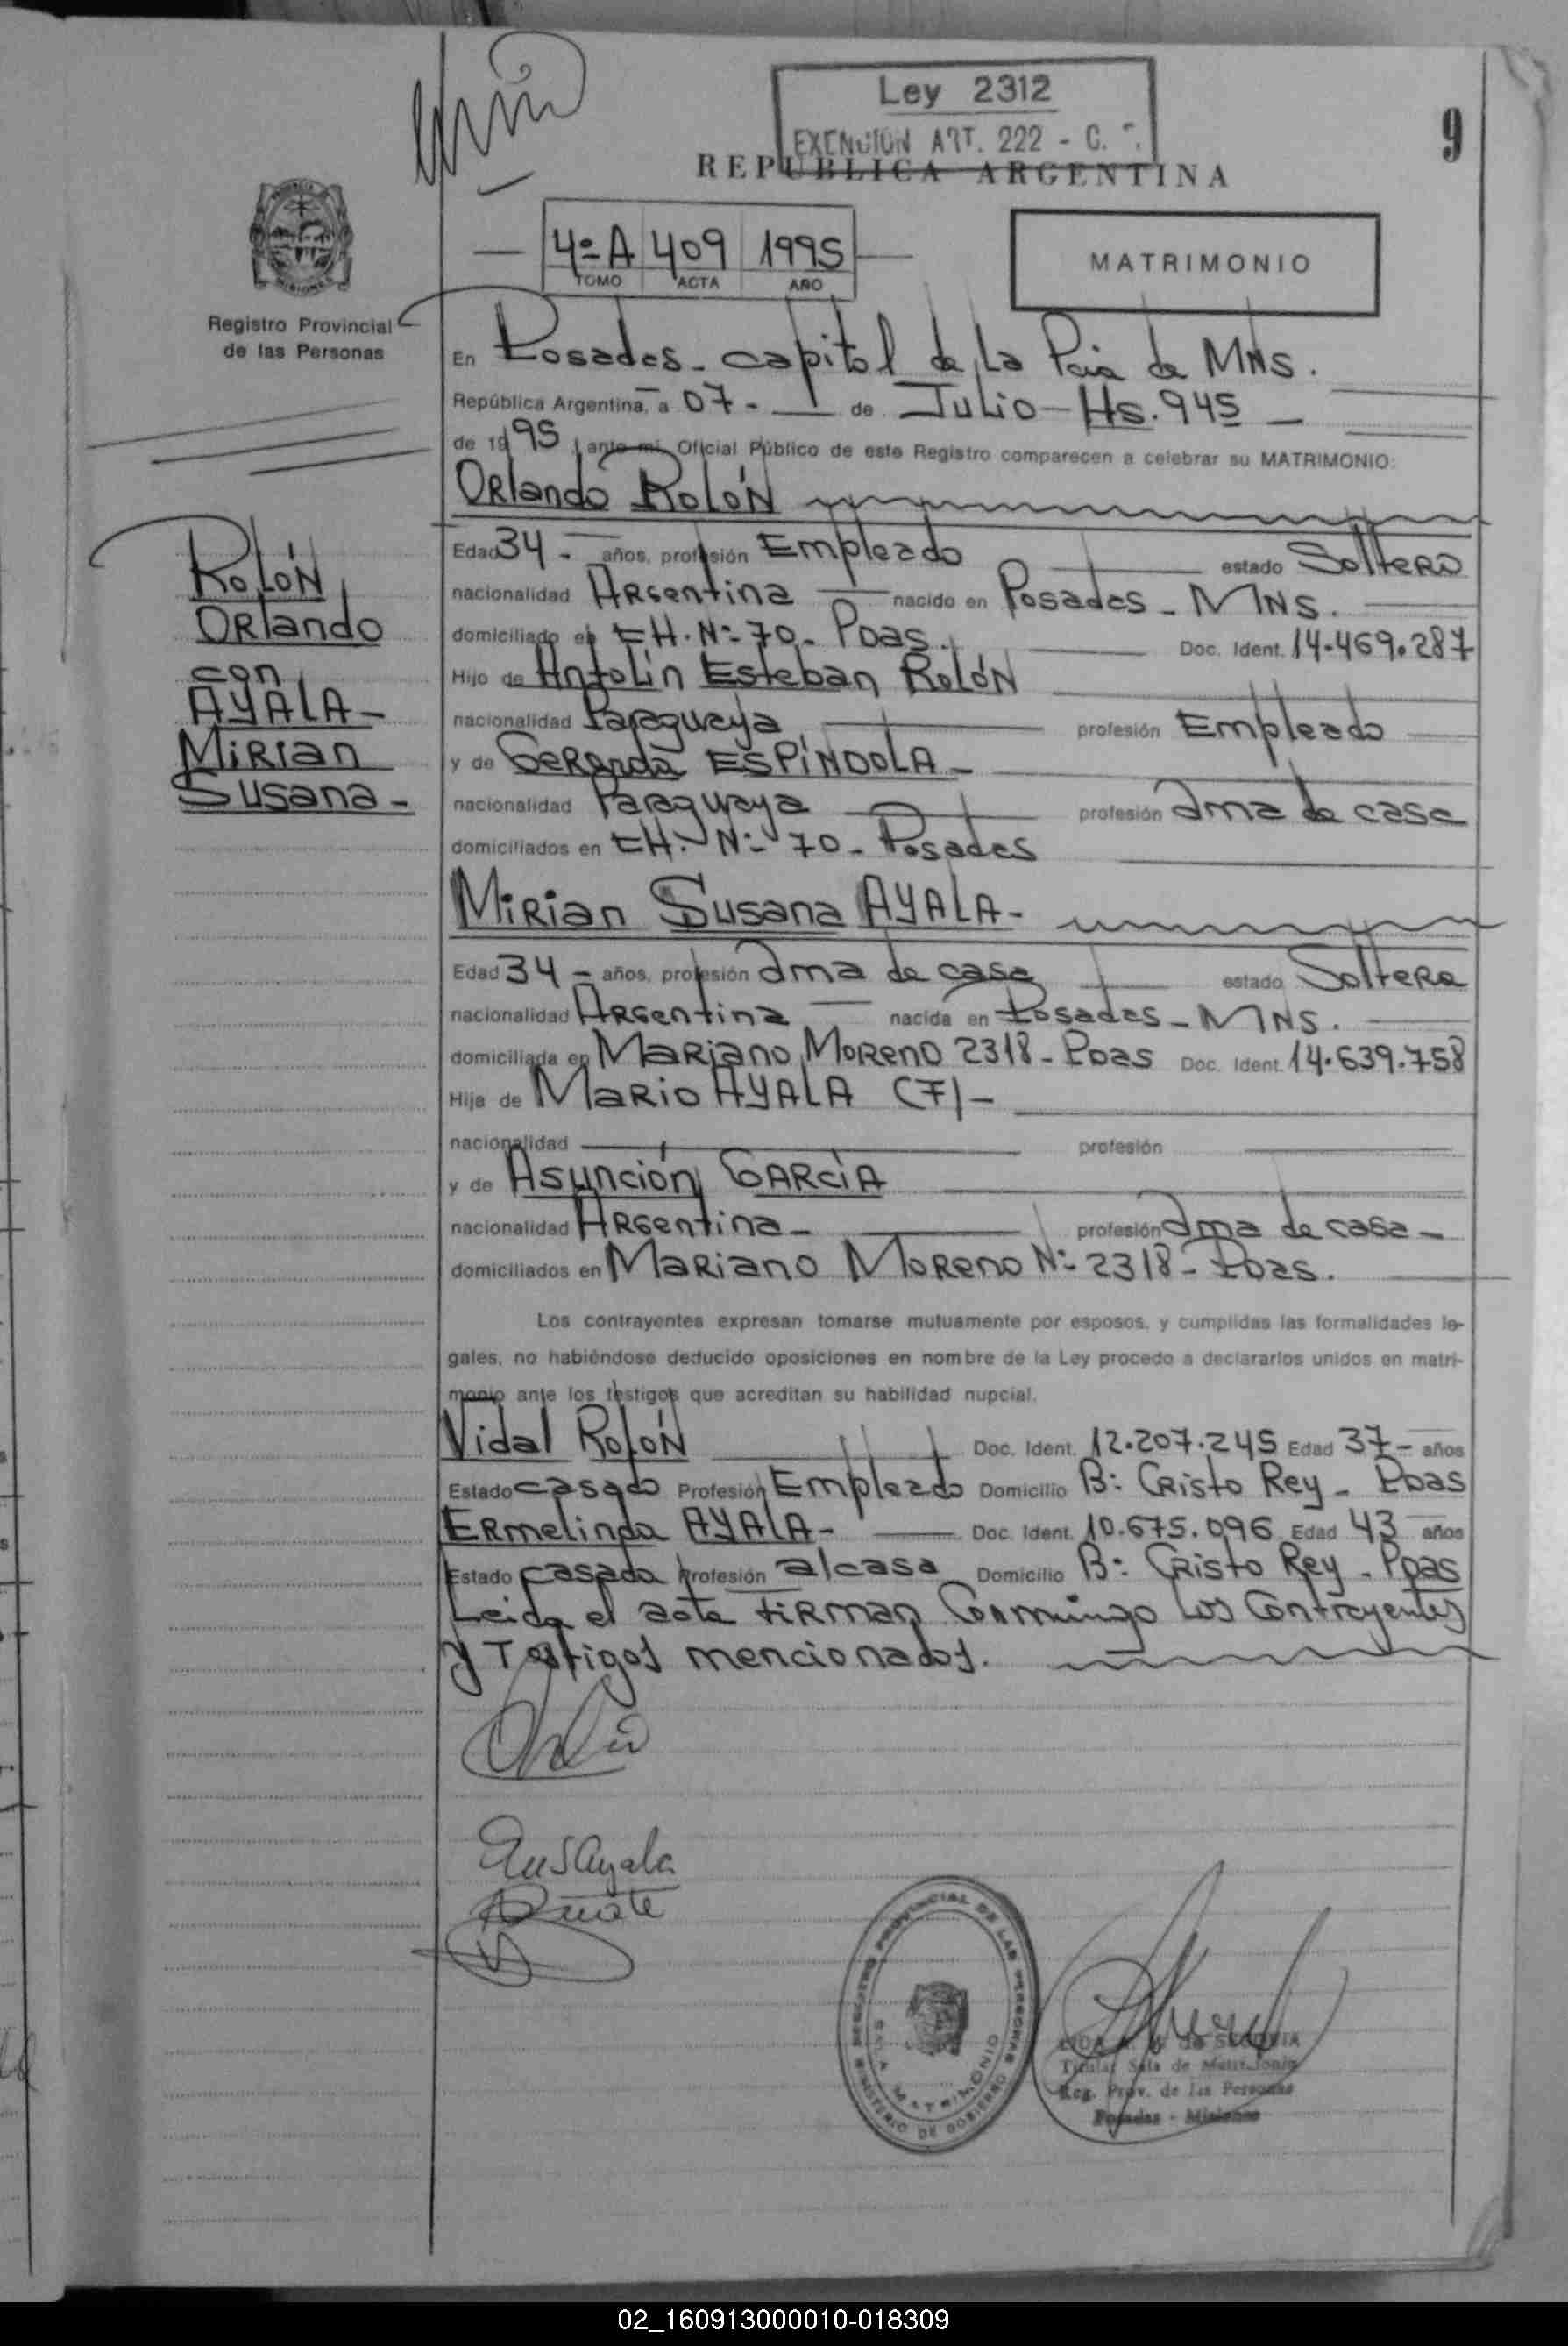 Ley 2312
EXENCIÓN ART. 222 - C.
REPUBLICA ARGENTINA
9
4º A 409 1995
TOMO ACTA AÑO
MATRIMONIO
Registro Provincial
de las Personas
En Posadas - capital de La Pcia de MNS.
República Argentina, a 07 - de Julio - Hs. 945
de 1995, ante mi, Oficial Público de este Registro comparecen a celebrar su MATRIMONIO:
Orlando Rolón
Rolón
Orlando
con
AYALA -
Mirian
Susana -
Edad 34 - años, profesión Empleado estado Soltero
nacionalidad Argentina nacido en Posadas - MNS.
domiciliado en CH. Nº 70 - Pdas. Doc. Ident. 14.469.287
Hijo de Antolin Esteban Rolón
nacionalidad Paraguaya profesión Empleado
y de Gerarda ESPÍNDOLA -
nacionalidad Paraguaya profesión ama de casa
domiciliados en CH. Nº 70 - Posadas
Mirian Susana AYALA -
Edad 34 - años, profesión ama de casa estado Soltera
nacionalidad Argentina nacida en Posadas - MNS.
domiciliada en Mariano Moreno 2318 - Pdas Doc. Ident. 14.639.758
Hija de Mario AYALA (F) -
nacionalidad profesión
y de Asunción GARCÍA
nacionalidad Argentina - profesión ama de casa -
domiciliados en Mariano Moreno Nº 2318 - Pdas.
Los contrayentes expresan tomarse mutuamente por esposos, y cumplidas las formalidades le-
gales, no habiéndose deducido oposiciones en nombre de la Ley procedo a declararlos unidos en matri-
monio ante los testigos que acreditan su habilidad nupcial.
Vidal Rolón Doc. Ident. 12.207.245 Edad 37 - años
Estado casado Profesión Empleado Domicilio Bº Cristo Rey - Pdas
Ermelinda AYALA - Doc. Ident. 10.675.096 Edad 43 años
Estado casada Profesión a/casa Domicilio Bº Cristo Rey - Pdas
Leida el acta firman Conmingo Los Contrayentes
y Testigos mencionados.
REGISTRO PROVINCIAL DE LAS PERSONAS
SALA MATRIMONIO
MINISTERIO DE GOBIERNO
Titular Sala de Matrimonio
Reg. Prov. de las Personas
Posadas - Misiones
02_160913000010-018309